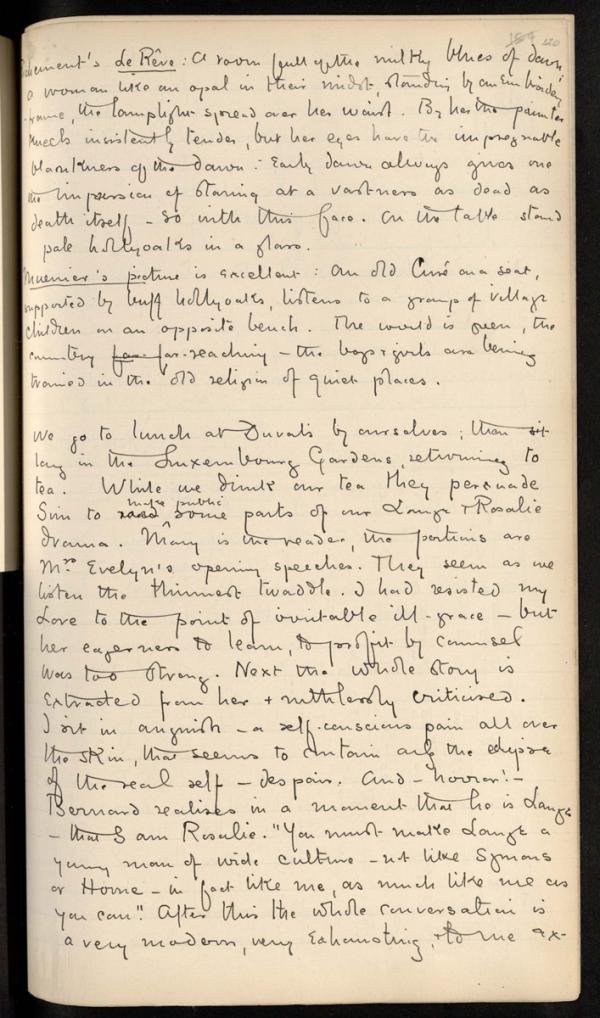 de Rêve: A room full of the milky blues of dawn,
a woman like an opal in their midst, standing by an Embroidery
frame, the lamplight spread over her waist. By her the painter
insistently tender, but her eyes have the impregnable
blankness of the dawn. Early dawn always gives one
the impression of staring at a vastness as dead as
death itself – So with this face. On the table stand
pale hollyoaks in a glass.
Muenier's picture is excellent: An old Curé on a seat,
supported by buff hollyoaks, listens to a group of village
children on an opposite bench. The world is green, the
country far far-reaching – the boys & girls are being
trained in the old religion of quiet places.
We go to lunch at Duvals by ourselves; then sit
long in the Luxembourg Gardens, returning to
tea. While we drink our tea they persuade
make public
Sim to read some parts of our Lange & Rosalie
drama. Mary is the reader, the portions are
Mrs Evelyn's opening speeches. They seem as we
listen the thinnest twaddle. I had resisted my
Love to the point of irritable ill-grace – but
her eagerness to learn, to profit by counsel
was too strong. Next the whole story is
Extracted from her & ruthlessly criticised.
I sit in anguish – a self-conscious pain all over
the skin, that seems to contain only the
of the real self – despair. And – horror! –
Bernard realises in a moment that he is Lange
– that I am Rosalie. "You must make Lange a
young man of wide culture – not like Symons
or Horne – in fact like me, as much like me as
you can". After this the whole conversation is
a very modern, very Exhausting, & to me ex-